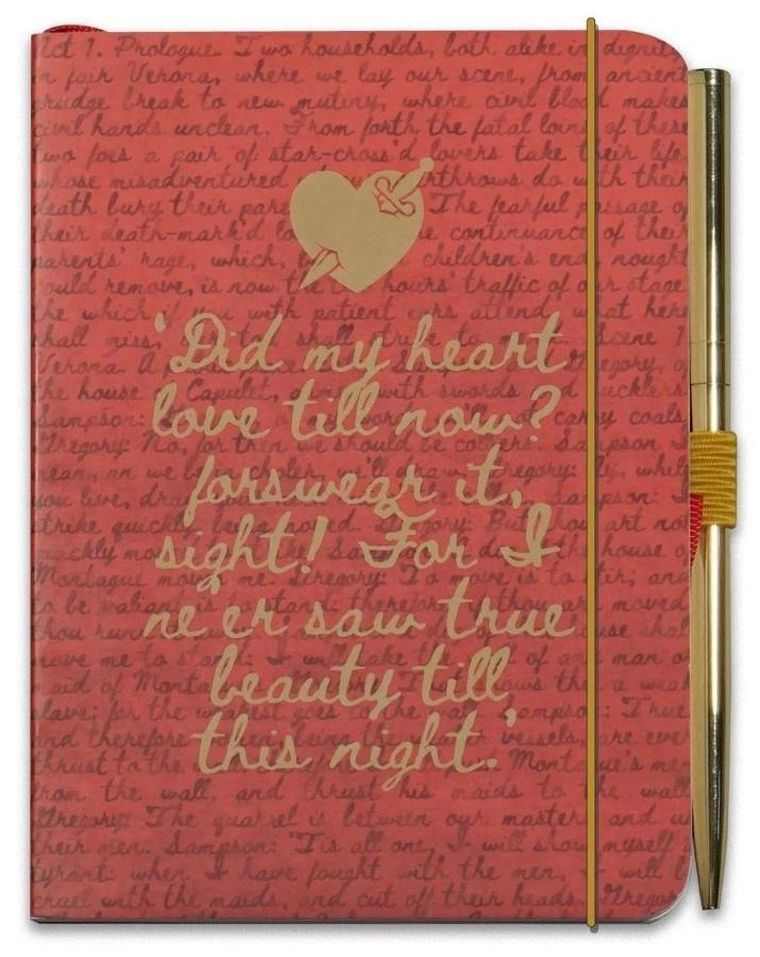 Act 1. Prologue. Two households, both alike in dignity
in fair Verona, where we lay our scene, from ancient
grudge break to new mutiny, where civil blood makes
civil hands unclean. From forth the fatal loins of these
two foes a pair of star-cross'd lovers take their life
whose misadventured thrthrows do with their
death bury their pare The fearful passage of
their death-mark'd lo e continuance of their
parents' rage, which, b children's end, nought
could remove, is now the hours' traffic of our stage
the which if you with patient ears attend, what here
shall miss, shall strive to Scene 1
Verona. A Gregory, of
the house Capulet, with swords bucklers
Sampson: carry coals
Gregory: No, for then we should be colliers. Sampson I
mean, an we be in choler, we'll draw Gregory: Ay, while
you live, Sampson: I
strike quickly being moved. Gregory: But thou art not
quickly of the house of
Montague moves me. Gregory: To move is to stir; and
to be valiant is to stand: therefore, if thou art moved
thou runn shall
move me to stand: I will take of any man or
maid of Montague That shows thee a weak
slave; for the weakest goes to the wall. Sampson: True
and therefore women, being the vessels, are ever
thrust to the Montague's men
from the wall, and thrust his maids to the wall
Gregory: The quarrel is between our masters and us
their men. Sampson: 'Tis all one, I will show myself a
tyrant: when I have fought with the men, I will be
cruel with the maids, and cut off their heads. Gregory
'Did my heart
love till now?
forswear it,
sight! For I
ne'er saw true
beauty till
this night.'